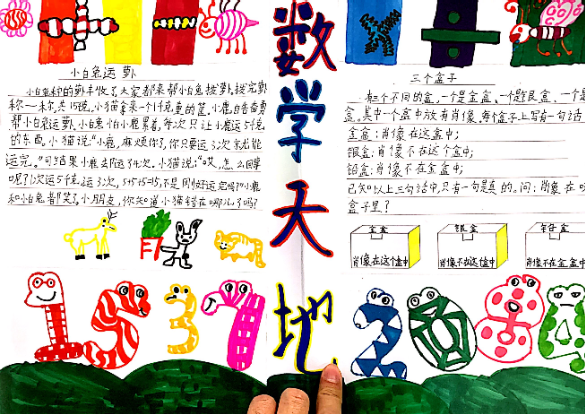 数学天地
小白兔运萝卜
小白兔种的萝卜丰收了,大家都来帮小白兔拔萝卜,拔完萝卜
称一称,共15千克。小猫拿来一个1千克重的筐,小鹿自告奋勇
帮小白兔运萝卜,小白兔怕小鹿累着,每次只让小鹿运5千克
的东西。小猫说:“小鹿,麻烦你了,你只要运3次就能
运完。”可结果小鹿去运了4次。小猫说:“哎,怎么回事
呢?1次运5千克,运3次,5+5+5=15,不是刚好运完吗?”小鹿
和小白兔都笑了,小朋友,你知道小猫错在哪儿了吗?
三个盒子
有三个不同的盒,一个是金盒,一个是银盒,一个是
盒,其中一个盒中放有肖像,每个盒子上写有一句话
金盒:肖像在这盒中;
银盒:肖像不在这个盒中;
铅盒:肖像不在金盒中;
已知以上三句话中,只有一句是真的。问:肖像在
盒子里?
金盒
肖像在这个盒中
银盒
肖像不在这盒中
铅盒
肖像不在金盒中
1 5 3 9
2 0 8 6